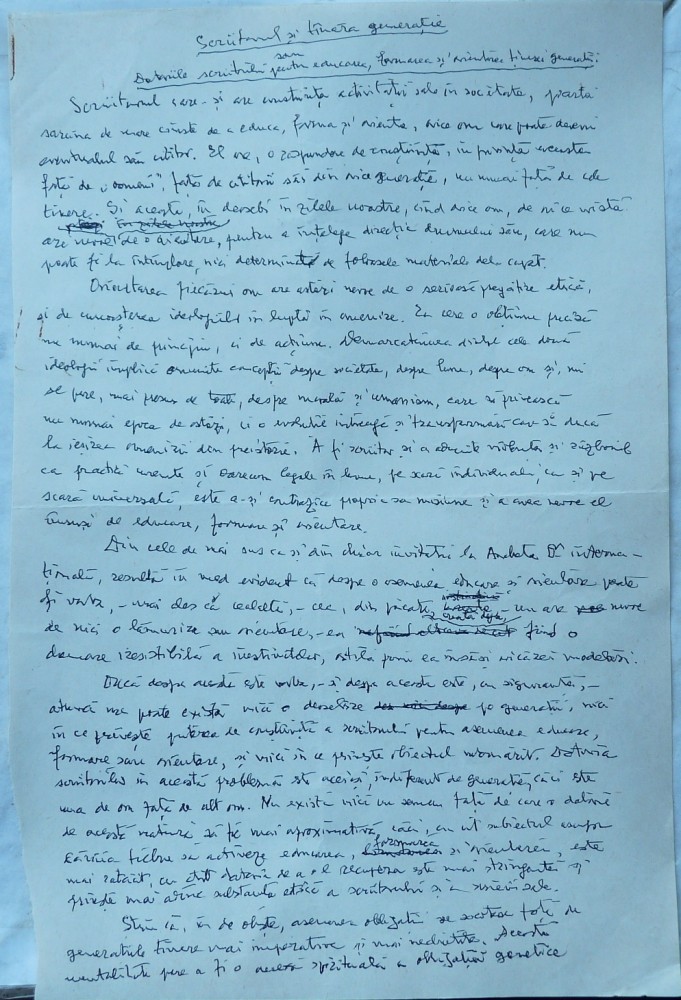 Scriitorul și tînăra generație
sau
Datoriile scriitorului pentru educarea, formarea și orientarea tinerei generații.
Scriitorul care-și are conștiința activității sale în societate, poartă
sarcina de mare cinste de a educa, forma și orienta, orice om care poate deveni
eventualul său cititor. El are, o răspundere de conștiință, în privința aceasta
față de „oameni", față de cititorii săi din orice generație, nu numai față de cele
tinere. Și aceasta, în deosebi în zilele noastre, cînd orice om, de orice vîrstă
are nevoie de o ajutare, pentru a înțelege direcția drumului său, care nu
poate fi la întîmplare, nici determinat de foloasele materiale dela capăt.
Orientarea fiecărui om are astăzi nevoe de o serioasă pregătire etică,
și de cunoașterea ideologiilor în luptă în omenire. Ea cere o opțiune precisă
nu numai de principiu, ci de acțiune. Demarcațiunea dintre cele două
ideologii implică anumite concepții despre societate, despre lume, despre om și, mi
se pare, mai presus de toate, despre morală și umanism, care să privească
nu numai epoca de astăzi, ci o evoluție întreagă și transformări care să ducă
la ieșirea omenirii din preistorie. A fi scriitor și a admite violența și războiul
ca practici curente și oarecum legale în lume, pe scară individuală, ca și pe
scară universală, este a-și contrazice propria sa misiune și a avea nevoe el
însuși de educare, formare și orientare.
Din cele de mai sus ca și din chiar invitația la Ancheta interna-
țională, rezultă în mod evident că despre o asemenea educare și orientare poate
fi vorba, - mai ales că cealaltă, - cea, din păcate, - nu are nevoe
de nici o lămurire sau orientare, - ea fiind o
demarare irezistibilă a instinctelor, ostilă prin ea însăși oricărei modelări.
Dacă despre aceasta este vorba, - și despre aceasta este, cu siguranță, -
atunci nu poate exista nici o deosebire pe generații, nici
în ce privește puterea de conștiință a scriitorului pentru asemenea educare,
formare sau orientare, și nici în ce privește obiectul însuși. Datoria
scriitorilor în această problemă este aceiași, indiferent de generație, căci este
una de om față de alt om. Nu există nici un seman față de care o datorie
de această natură să fie mai aproximativă, căci, cu cît subiectul asupra
căruia trebue să activeze educarea, formarea și orientarea, este
mai rătăcit, cu atît datoria de a-l recupera este mai stringentă și
privește mai adînc substanța etică a scriitorului și a scrierii sale.
Știu că, în de obște, asemenea obligații se socotesc față de
generațiile tinere mai imperative și mai nedezlipite. Această
mentalitate pare a fi o anexă spirituală a obligației genetice